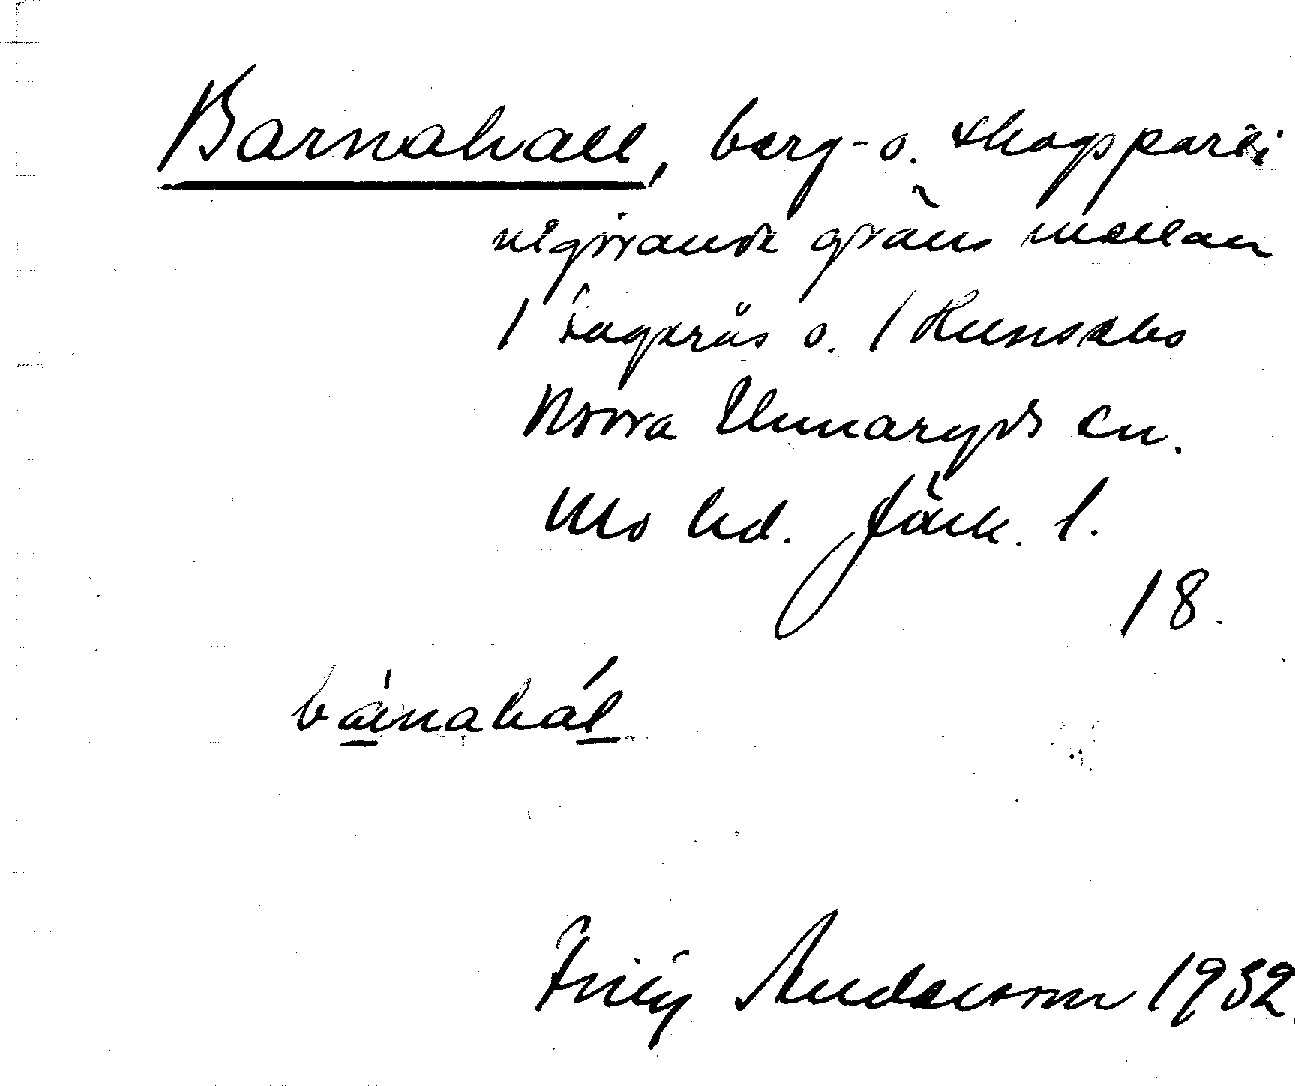 Barnahall, berg- o. skogsparti
utgörande gräns mellan
/ Fageräs o. / Hunsebo
Norra Unnaryds sn.
Mo hd. Jönk. l.
18.
bánahál
Fritz Anderson 1932